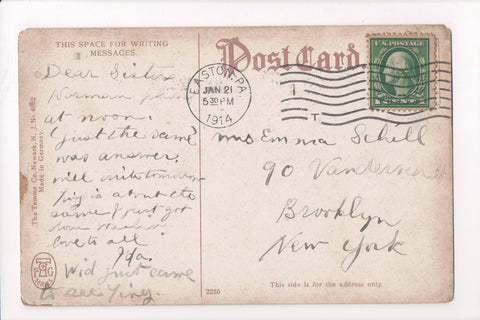 THIS SPACE FOR WRITING
MESSAGES.
Post Card
U.S. POSTAGE
EASTON, PA.
JAN 21
5 30 PM
1914
T.
Dear Sister
Norman
at noon.
Just the same
was answer,
will write tomorrow
is about the
same I just got
done
love to all
Ida.
Wid just came
to see
Mrs Emma Schell
90
Brooklyn
New York
The Temme Co. Newark, N. J. No
Made in Germany.
2235
This side is for the address only.